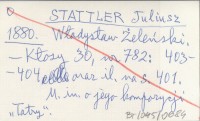 STATTLER Juliusz
1880. Władysław Żeleński.
– Kłosy 30, nr 782: 403–
–404 oraz il. na s. 401.
M. in. o jego kompozycji
"Tatry".